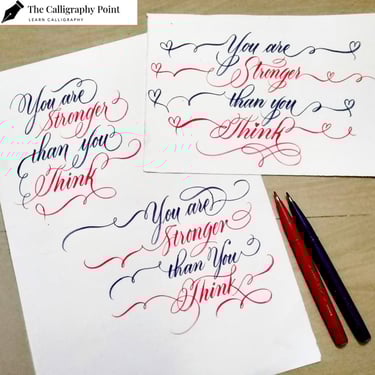 The Calligraphy Point
LEARN CALLIGRAPHY
You are
Stronger
than you
Think
You are
Stronger
than you
Think
You are
Stronger
than You
Think